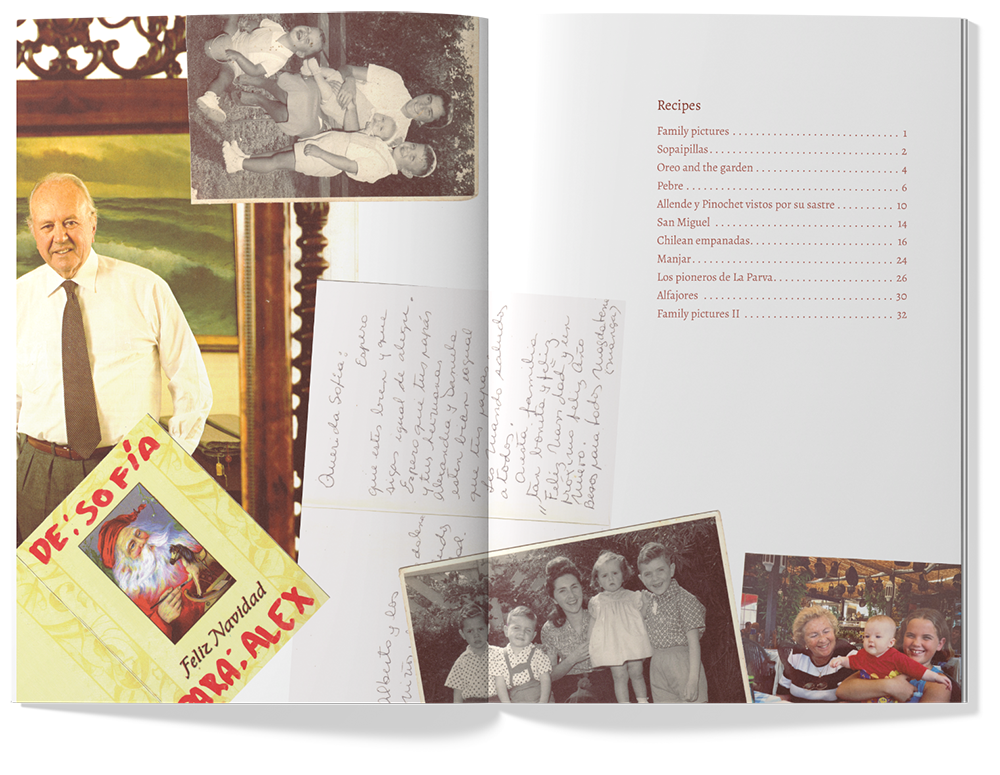 DE: SOFÍA
Feliz Navidad
PARA: ALEX
Querida Sofía:
Espero
que estes bien y que
sigas igual de alegre.
Espero que tus papás
y tus hermanas
y Daniela
esten bien igual
que tus papas.
mando saludos
a todos,
familia
tan bonita y feliz
Feliz navidad y un
próximo feliz año
Besos para todos Magdalena
Alberto y los
Recipes
Family pictures . . . . . . . . . . 1
Sopaipillas . . . . . . . . . . 2
Oreo and the garden . . . . . . . . . . 4
Pebre . . . . . . . . . . 6
Allende y Pinochet vistos por su sastre . . . . . . . . . . 10
San Miguel . . . . . . . . . . 14
Chilean empanadas. . . . . . . . . . 16
Manjar . . . . . . . . . . 24
Los pioneros de La Parva . . . . . . . . . . 26
Alfajores . . . . . . . . . . 30
Family pictures II . . . . . . . . . . 32